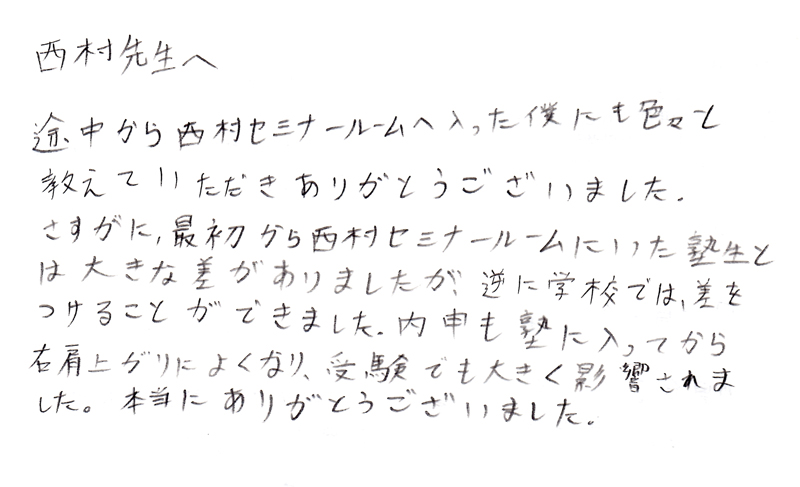 西村先生へ
途中から西村セミナールームへ入った僕にも色々と
教えていただきありがとうございました.
さすがに,最初から西村セミナールームにいた塾生と
は大きな差がありましたが、逆に学校では,差を
つけることができました.内申も塾に入ってから
右肩上がりによくなり、受験でも大きく影響されま
した。本当にありがとうございました.